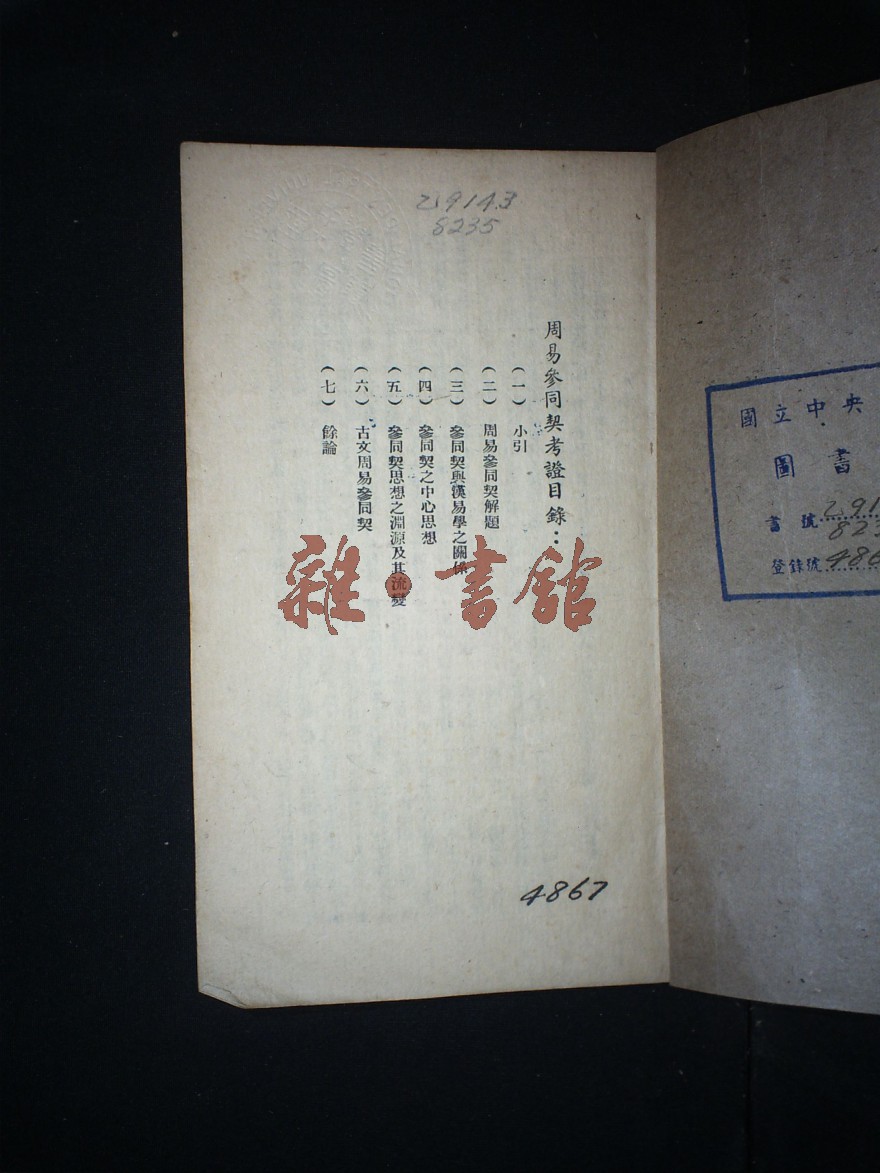 乙914.3
8235
周易參同契考證目錄：
(一) 小引
(二) 周易參同契解題
(三) 參同契與漢易學之關係
(四) 參同契之中心思想
(五) 參同契思想之淵源及其流變
(六) 古文周易參同契
(七) 餘論
雜書館
4867
國立中央
圖書
書號
登錄號